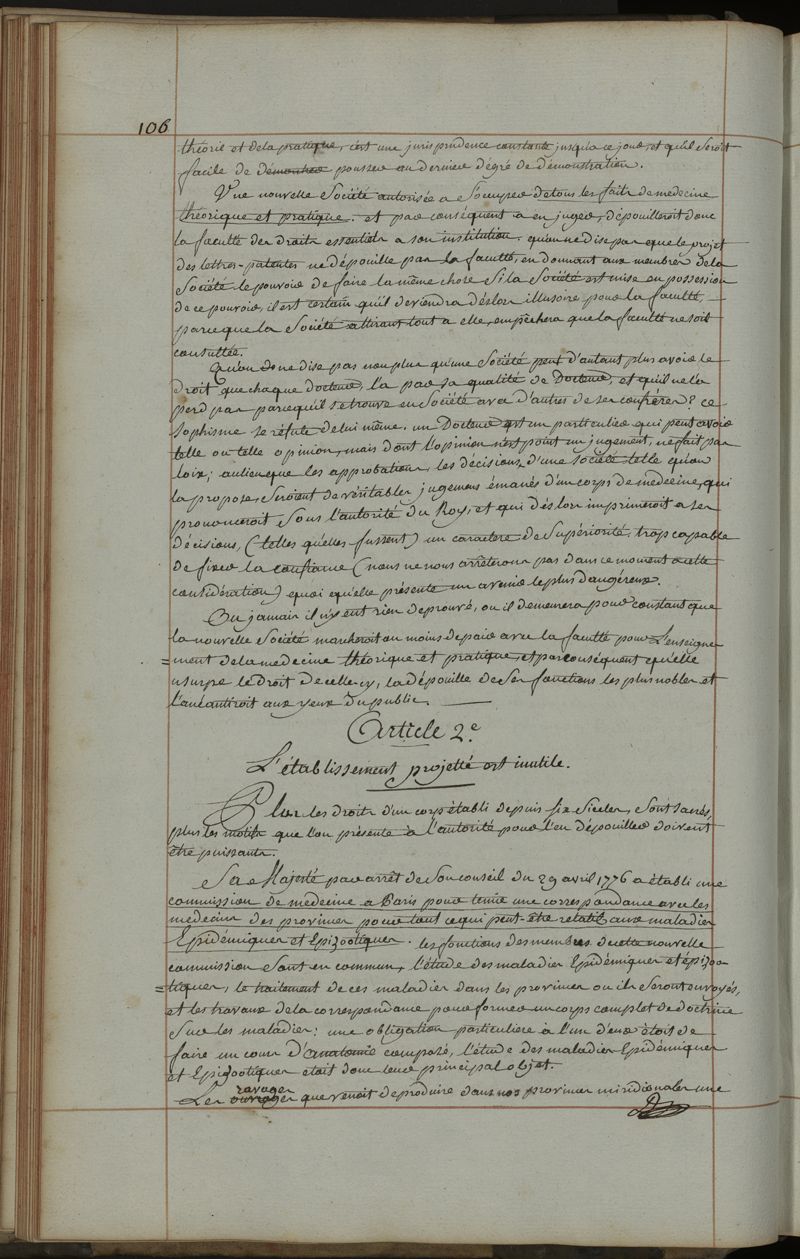 106
théorie et de la pratique, c'est une jurisprudence constante jusqu'a ce jour, et qu'il seroit
facile de démontrer pousser au dernier dégré de démonstration.
Une nouvelle Société autorisée a s'occuper de tous les faits de medecine
théorique et pratique. et par conséquent a en juger, dépouilleroit donc
la faculté des droits essentiels a son institution. qu'on ne dise pas que le projet
des lettres-patentes ne dépouille pas la faculté, en donnant aux membres de la
Société le pouvoir de faire la même chose si la Société est mise en possession
de ce pouvoir, il est certain qu'il deviendra dèslors illusoire pour la faculté,
parce que la Société attirant tout a elle, empêchera que la faculté ne soit
consultée.
Qu'on do ne dise pas non plus qu'une Société peut d'autant plus avoir le
droit que chaque Docteur, l'a par sa qualité de Docteur, et qu'il ne la
perd pas parcequ'il se trouve en Société avec d'autres de ses confréres? ce
sophisme se réfute de lui même. un Docteur est un particulier qui peut avoir
telle ou telle opinion, mais dont l'opinion n'est point un jugement, ne fait pas
loix; au lieu que les approbations, les décisions d'une société telle qu'on
la propose, seroient de véritables jugemens émanés d'un corps de medecine, qui
prononceroit sous l'autorité du Roy, et qui dèslors imprimeroit a ses
décisions, (telles qu'elles fussent) un caractere de supériorité, trop capable
de fixer la confiance (nous ne nous arrêterons pas dans ce moment a cette
considération) quoi qu'elle présente un avenir le plus dangéreux.
Ou jamais il n'y eut rien de prouvé, ou il demeurera pour constant que
la nouvelle Société marcheroit au moins de pair avec la faculté pour L'enseigne-
=ment de la medecine théorique et pratique, et par conséquent qu'elle
usurpe le droit de celle-cy, la dépouille de ses fonctions les plus nobles et
l'anéantiroit aux yeux du public.
Article 2.e
L'établissement projetté est inutile.
Plus les droits d'un corps établi depuis six siécles, sont sacrés,
plus les motifs que l'on présente à l'autorité pour l'en dépouiller doivent
être puissants.
Sa Majesté par arrêt de son conseil du 29 avril 1776 a établi une
commission de médecine a Paris pour tenir une correspondance avec les
médecins des provinces pour tout ce qui peut-être relatif aux maladies
Epidémiques et Epizootiques. les fonctions des membres de cette nouvelle
commission sont en commun, l'étude des maladies Epidémiques et épizoo-
=tiques, le traitement de ces maladies dans les provinces ou ils seront envoyés,
et les travaux de la correspondance pour former un corps complet de doctrine
sur les maladies; une obligation particuliere à l'un d'eux étoit de
faire un cours d'anatomie comparée, l'étude des maladies Epidémiques
et Epizootiques etait donc leur principal objet.
ravages
Les ouvrages que venoit de produire dans nos provinces méridionales une